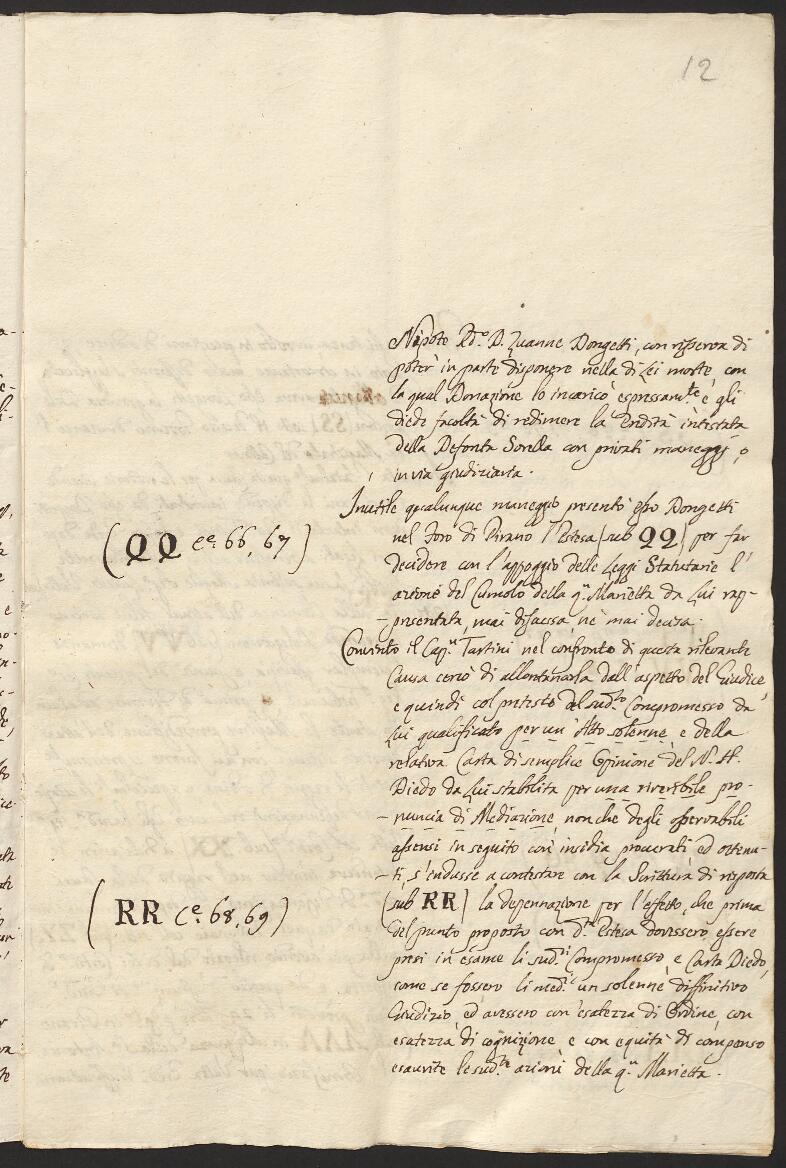 12
Nipote Rd.º D. Zuanne Dongetti, con risserva di
poter in parte disponere nella di Lei morte, con
la qual Donazione lo incaricò espressam.te e gli
diede facoltà di redimere la Eredità intestata
della Defonta Sorella con privati maneggj, o
in via giudiziaria.
Inutile qualunque maneggio presentò esso Dongetti
nel Foro di Pirano l'Estesa (sub QQ) per far
decidere con l'appoggio delle Leggi Statutarie l'
azione del Cumolo della q.m Marietta da Lui rap-
-presentata, mai discussa, nè mai decisa.
(QQ c.e 66, 67)
Convinto il Cap.n Tartini nel confronto di questa rilevante
Causa cercò di allontanarla dall'aspetto del Giudice,
e quindi col pretesto del sud.to Compromesso da
Lui qualificato per un'Atto solenne, e della
relativa Carta di semplice Opinione del N. H.
Diedo da Lui stabilita per una riveribile pro-
-nuncia di Mediazione, non che degli osservabili
assensi in seguito con insidia procurati ed ottenu-
-ti, s'endusse a contestare con la Scrittura di risposta
(sub RR) la depennazione per l'effetto, che prima
del punto proposto con d.ta Estesa dovessero essere
presi in esame li sud.ti Compromesso e Carta Diedo,
come se fossero li med.i un solenne diffinitivo
Giudizio, ed avessero con esatezza di Ordine, con
esatezza di cognizione e con equità di compenso
esaurite le sud.te azioni della q.m Marietta.
(RR c.e 68, 69)